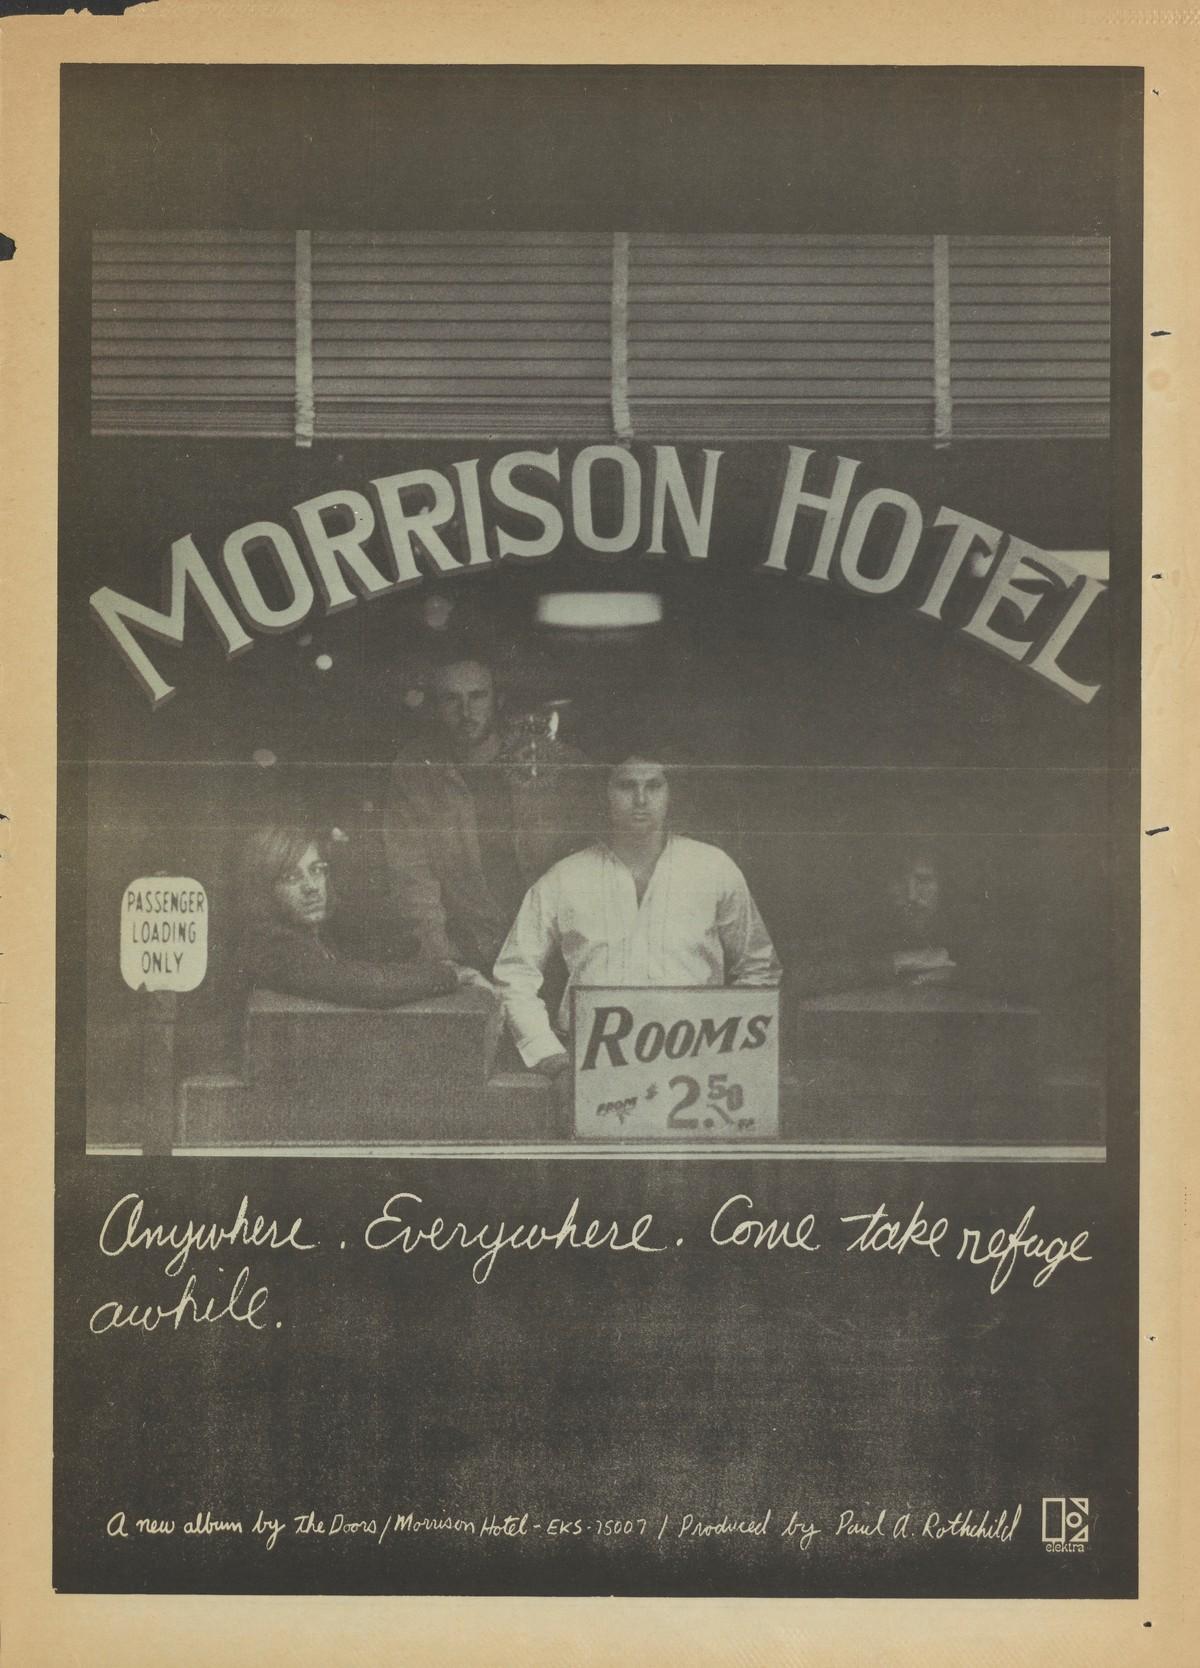 MORRISON HOTEL
PASSENGER
LOADING
ONLY
ROOMS
FROM $2.50
Anywhere. Everywhere. Come take refuge
awhile.
A new album by The Doors/Morrison Hotel-EKS-75007/Produced by Paul A. Rothchild
elektra